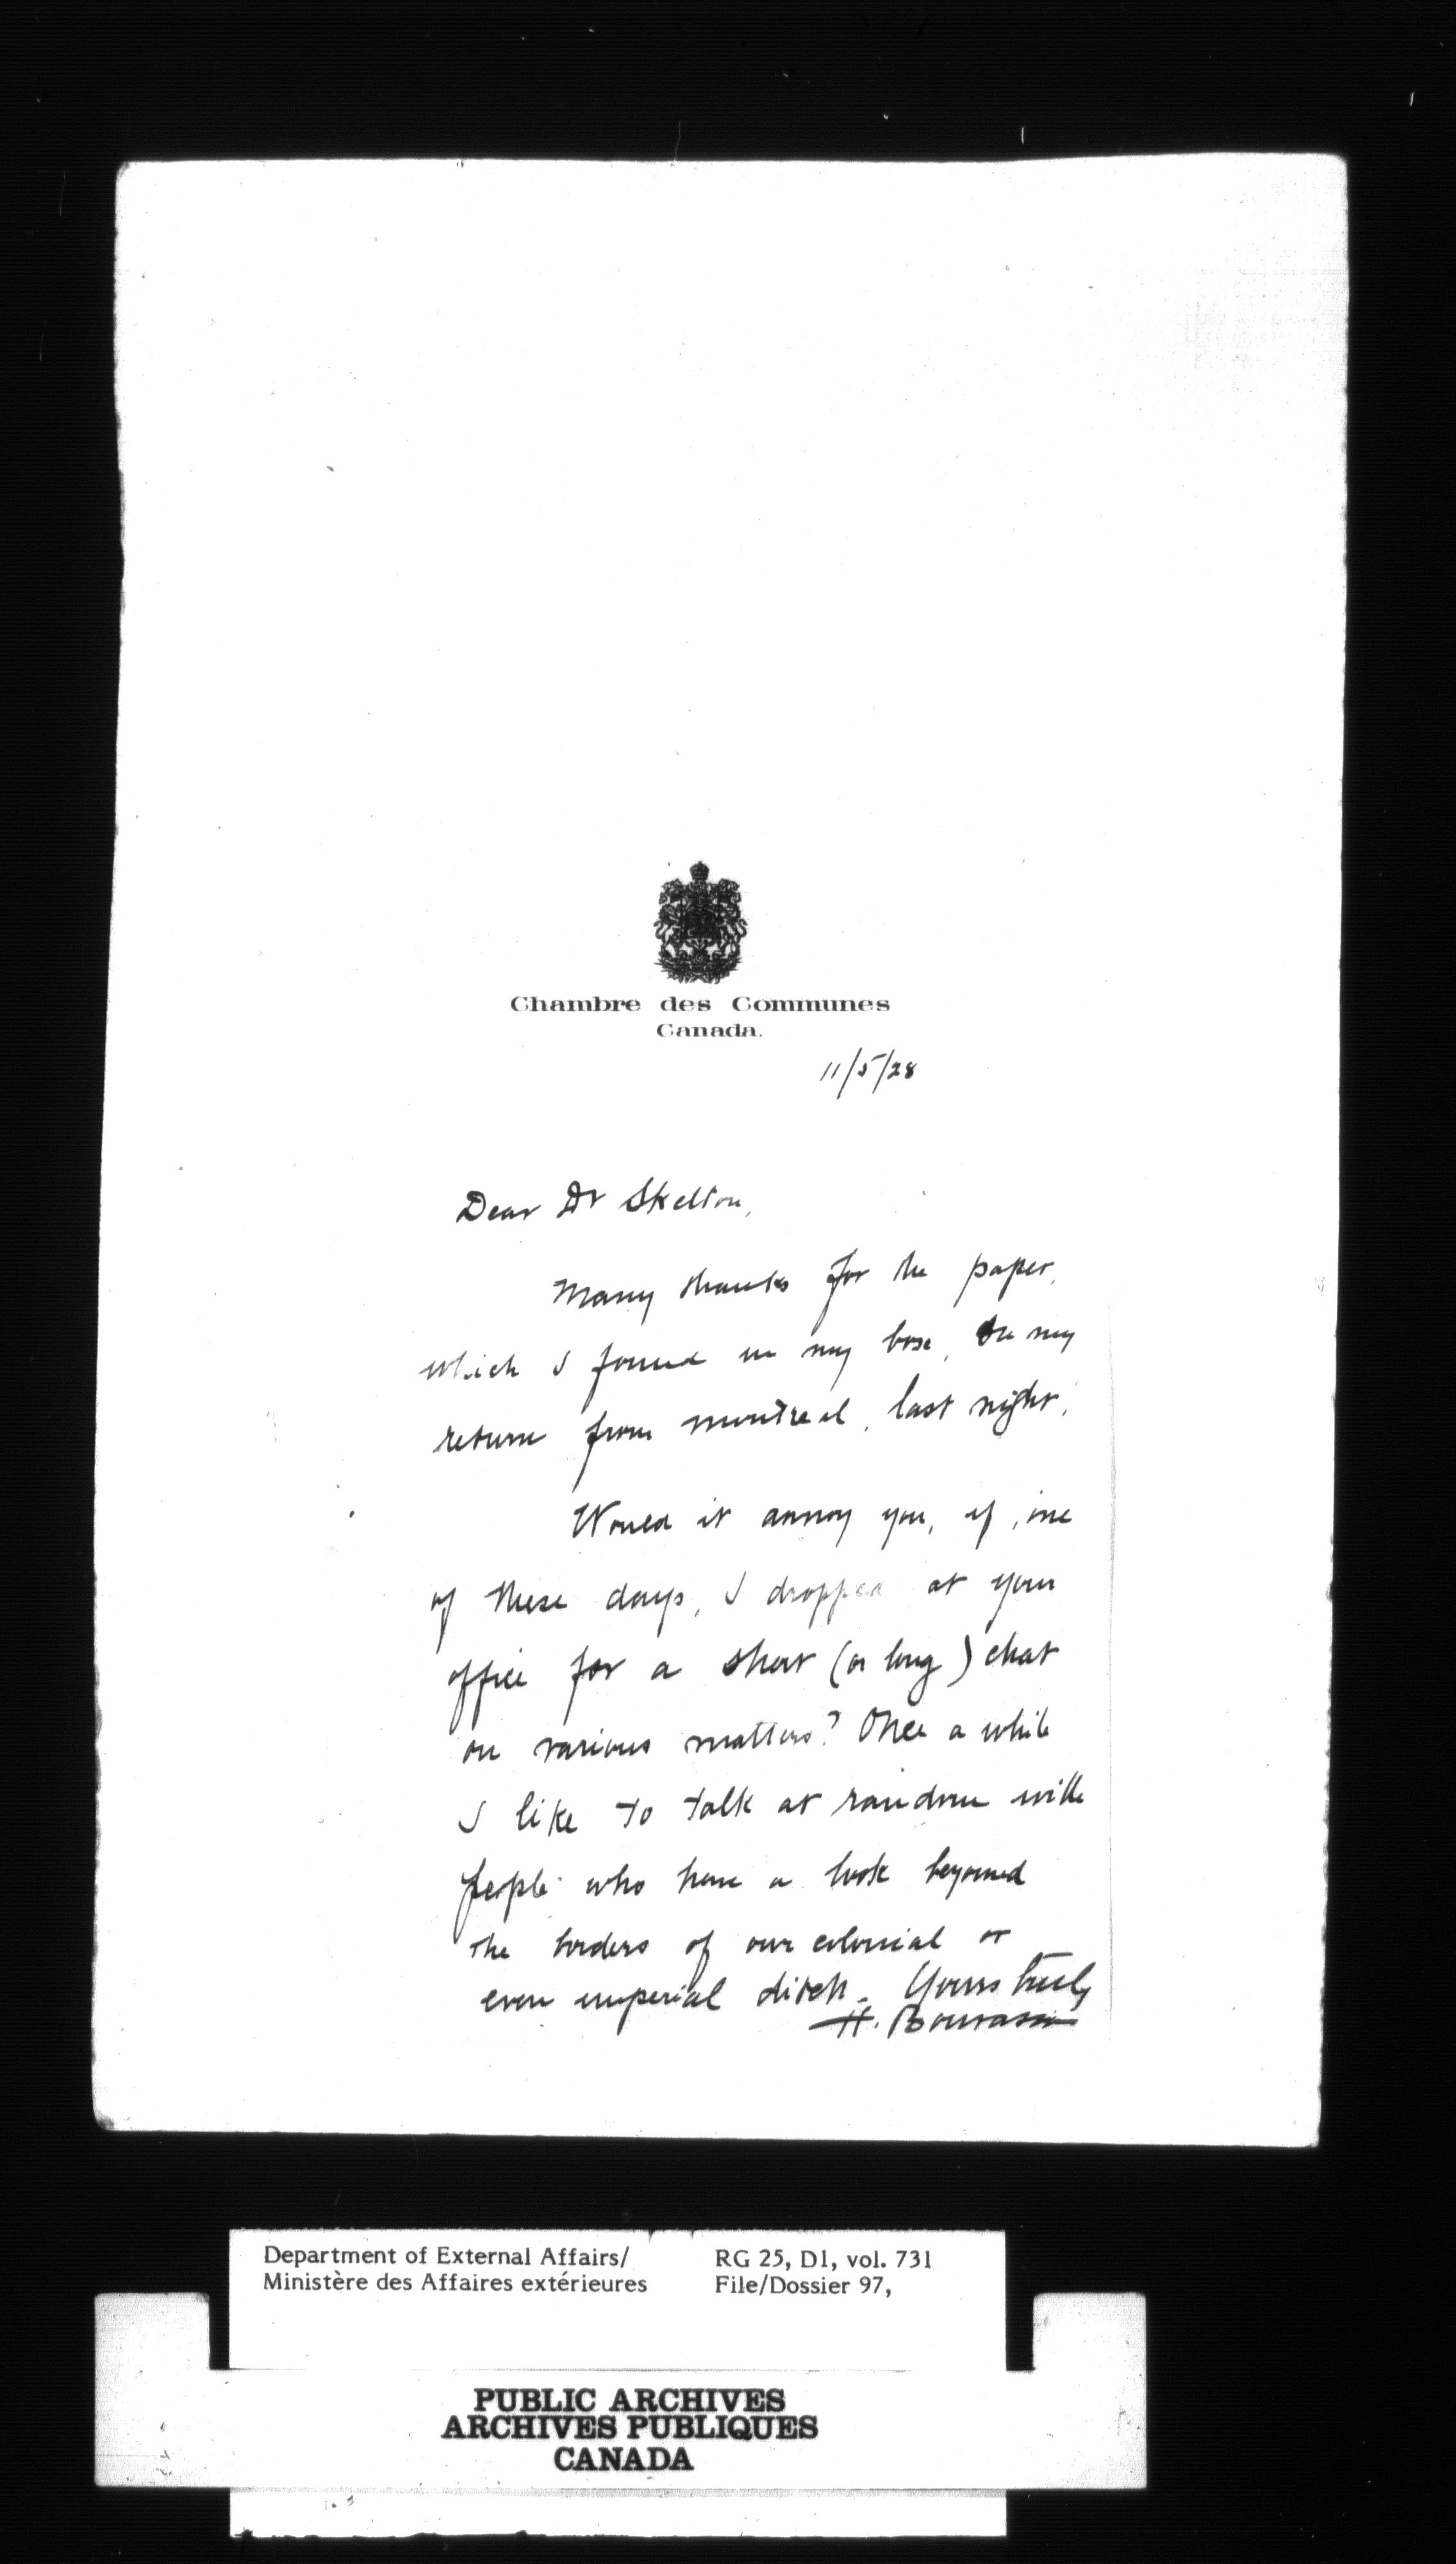 Chambre des Communes
Canada.
11/5/28
Dear Dr Skelton,
Many thanks for the paper,
which I found in my box, on my
return from Montreal, last night.
Would it annoy you, if, one
of these days, I dropped at your
office for a short (or long) chat
on various matters? Once a while
I like to talk at random with
people who have a look beyond
the borders of our colonial or
even imperial ditch. Yours truly
H. Bourassa
Department of External Affairs/ RG 25, D1, vol. 731
Ministère des Affaires extérieures File/Dossier 97,
PUBLIC ARCHIVES
ARCHIVES PUBLIQUES
CANADA